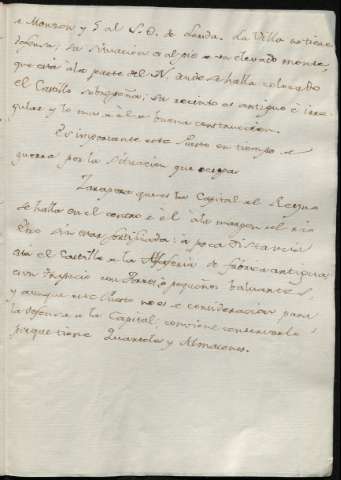 de Monzon y 5 al S.O. de Lerida. La Villa no tiene
defensa; su situacion es al pie de un elevado monte,
que está á la parte del N. donde se halla colocado
el Castillo su recinto es antiguo é irre-
gular y lo mas de el de buena construccion.
Es importante este Puesto en tiempo de
guerra por la situacion que ocupa
Zaragoza que es la Capital del Reyno
se halla en el centro de él á la margen del rio
Ebro sin estar fortificada: à poca distancia
está el Castillo de la Aljaferia de fabrica antigua
con Torres, ó pequeños baluartes,
y aunque este Puesto no es de consideracion para
la defensa de la Capital, conviene conservarlo
porque tiene Quarteles y Almacenes.